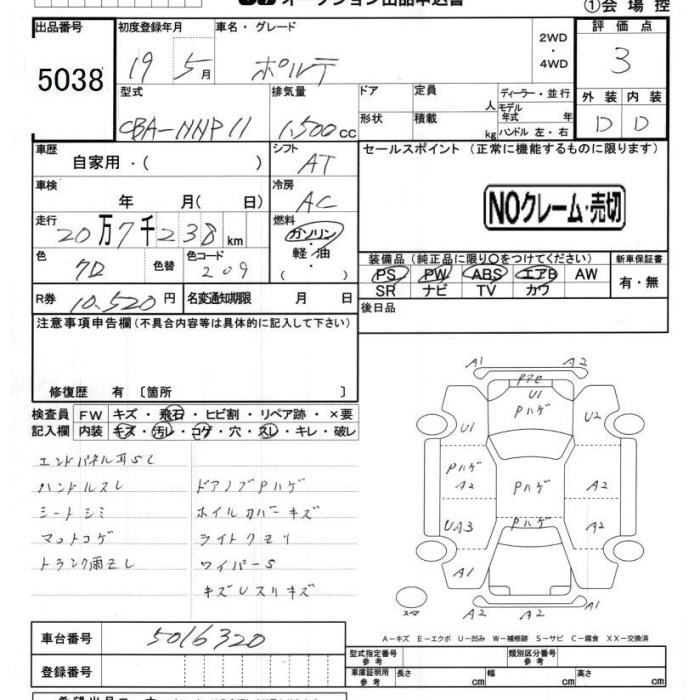 オークション出品申込書
①会場控
出品番号
5038
初度登録年月
19 5月
車名・グレード
ポルテ
2WD
・
4WD
評価点
3
型式
CBA-NNP11
排気量
1,500cc
ドア
定員
人
形状
積載
kg
ディーラー・並行
モデル年式 年
ハンドル 左・右
外装 内装
D D
車歴
自家用・( )
シフト
AT
車検
年 月( 日)
冷房
AC
走行
20万7千238km
燃料
ガソリン・軽油
( ・ )
色
7D
色替
色コード
209
R券 10,520円
名変通知期限 月 日
セールスポイント(正常に機能するものに限ります)
NOクレーム・売切
装備品(純正品に限り○をつけてください)
PS PW ABS エアB AW
SR ナビ TV カワ
新車保証書
有・無
後日品
注意事項申告欄(不具合内容等は具体的に記入して下さい)
修復歴 有〔箇所 〕
検査員記入欄
FW キズ・飛石・ヒビ割・リペア跡・×要
内装 キズ・汚レ・コゲ・穴・スレ・キレ・破レ
エンドパネル耳SC
ハンドルスレ ドアノブPハゲ
シートシミ ホイルカバーキズ
マットコゲ ライトクモリ
トランク雨モレ ワイパーS
キズUスリキズ
A1 A2
U1
Pハゲ
U1 U2
Pハゲ
A2 Pハゲ A2
UA3 Pハゲ A2
A1 A2
スペア
A2 A2
A-キズ E-エクボ U-凹み W-補修跡 S-サビ C-腐食 XX-交換済
車台番号 5016320
登録番号
型式指定番号 参考
類別区分番号 参考
車庫証明用 参考
長さ cm 幅 cm 高さ cm